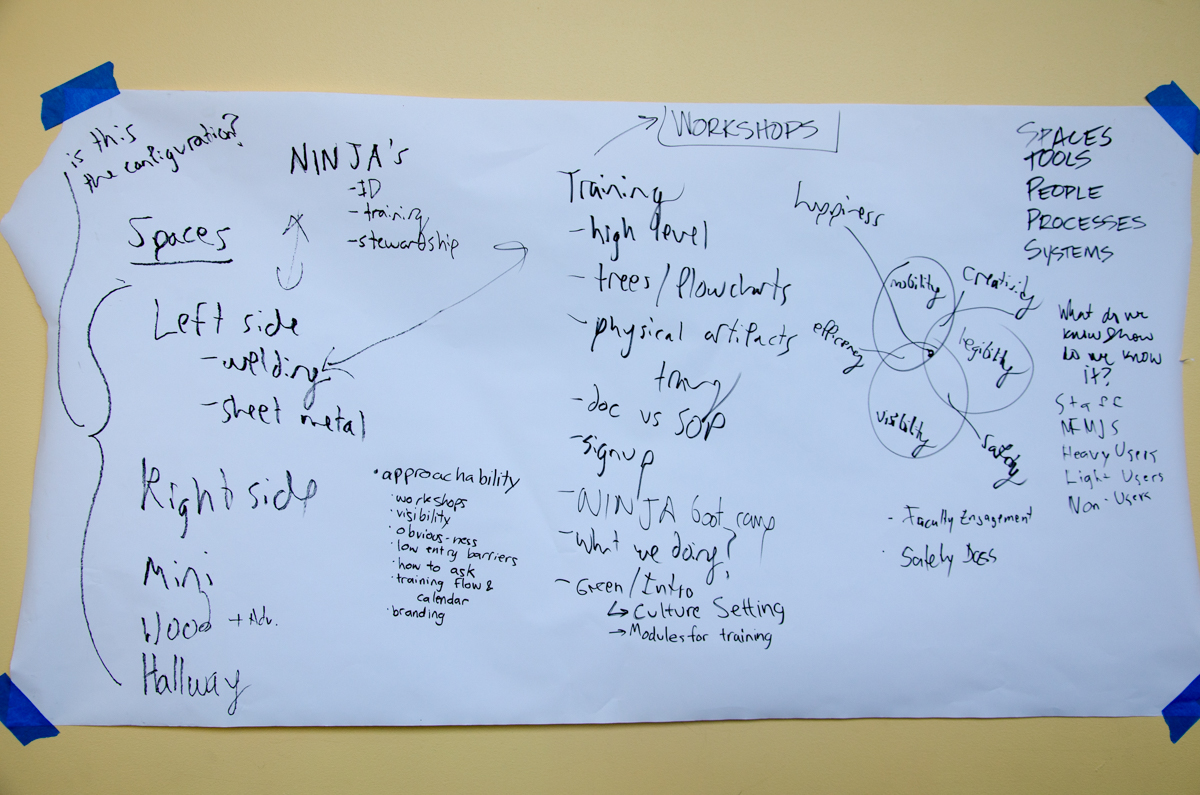 is this
the configuration?
NINJA's
-ID
-training
-stewardship
Spaces
Left side
-welding
-sheet metal
Right side
Mini
Wood + Adv.
Hallway
•approachability
·workshops
·visibility
·obvious-ness
·low entry barriers
·how to ask
·training flow &
calendar
·branding
WORKSHOPS
Training
-high level
-trees/flowcharts
-physical artifacts
-doc vs SOP
-signup
-NINJA boot camp
-What we doing?
-Green/Intro
↳ Culture Setting
→ Modules for training
happiness
mobility
creativity
efficiency
legibility
visibility
safety
SPACES
TOOLS
PEOPLE
PROCESSES
SYSTEMS
What do we
know & how
do we know
it?
Staff
Heavy Users
Light Users
Non-Users
- Faculty Engagement
· Safety DOSS